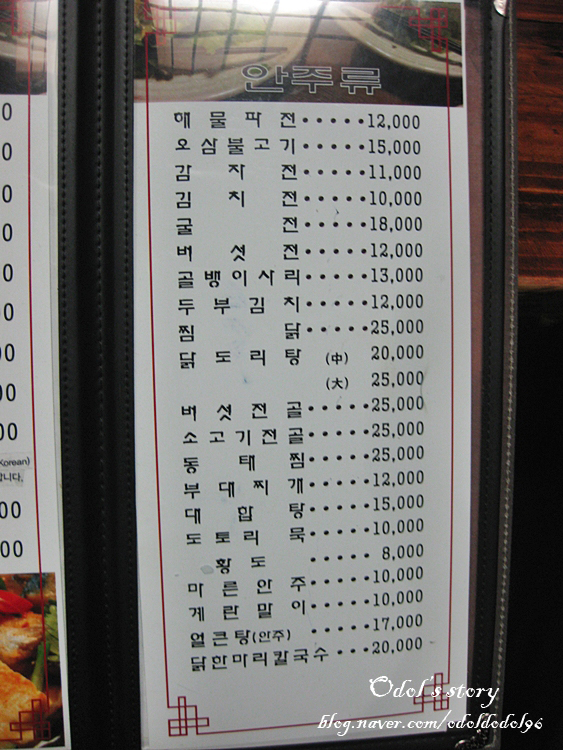 안주류
해물파전·····12,000
오삼불고기·····15,000
감자전·····11,000
김치전·····10,000
굴전·····18,000
버섯전·····12,000
골뱅이사리·····13,000
두부김치·····12,000
찜닭·····25,000
닭도리탕 (中) 20,000
(大) 25,000
버섯전골·····25,000
소고기전골·····25,000
동태찜·····25,000
부대찌개·····12,000
대합탕·····15,000
도토리묵·····10,000
황도·····8,000
마른안주·····10,000
계란말이·····10,000
얼큰탕(안주)·····17,000
닭한마리칼국수···20,000
Korean)
니다.
Odol's story
blog.naver.com/odoldodol96